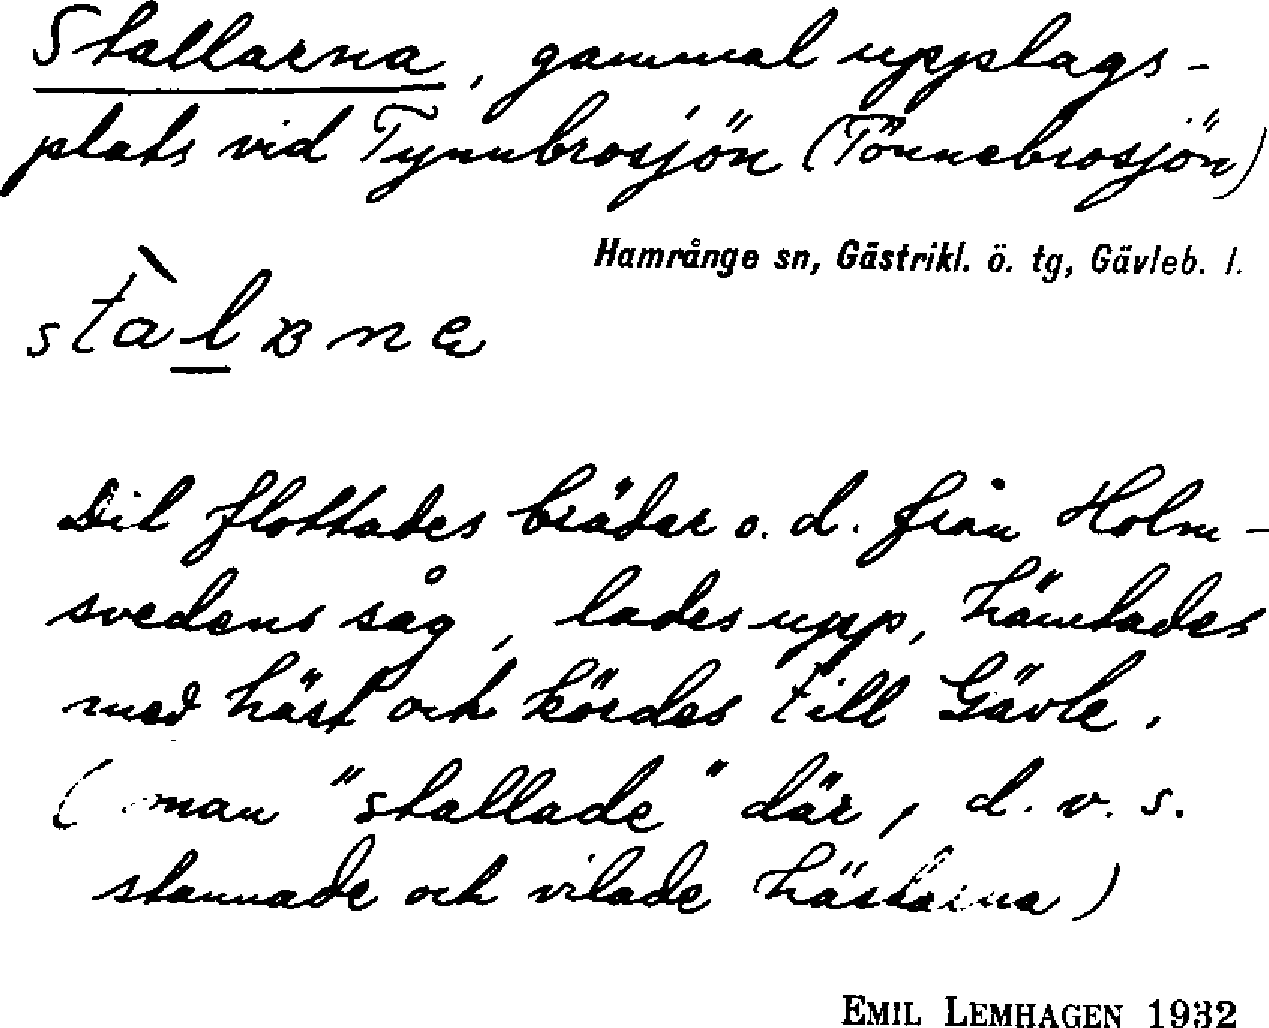 Stallarna, gammal upplags-
plats vid Tynnbrosjön (Tönnebrosjön)
Hamrånge sn, Gästrikl. ö. tg, Gävleb. l.
stàlʙna
Dit flottades bräder o. d. från Holm-
svedens såg, lades upp, hämtades
med häst och kördes till Gävle.
(man "stallade" där, d. v. s.
stannade och vilade hästarna)
EMIL LEMHAGEN 1932